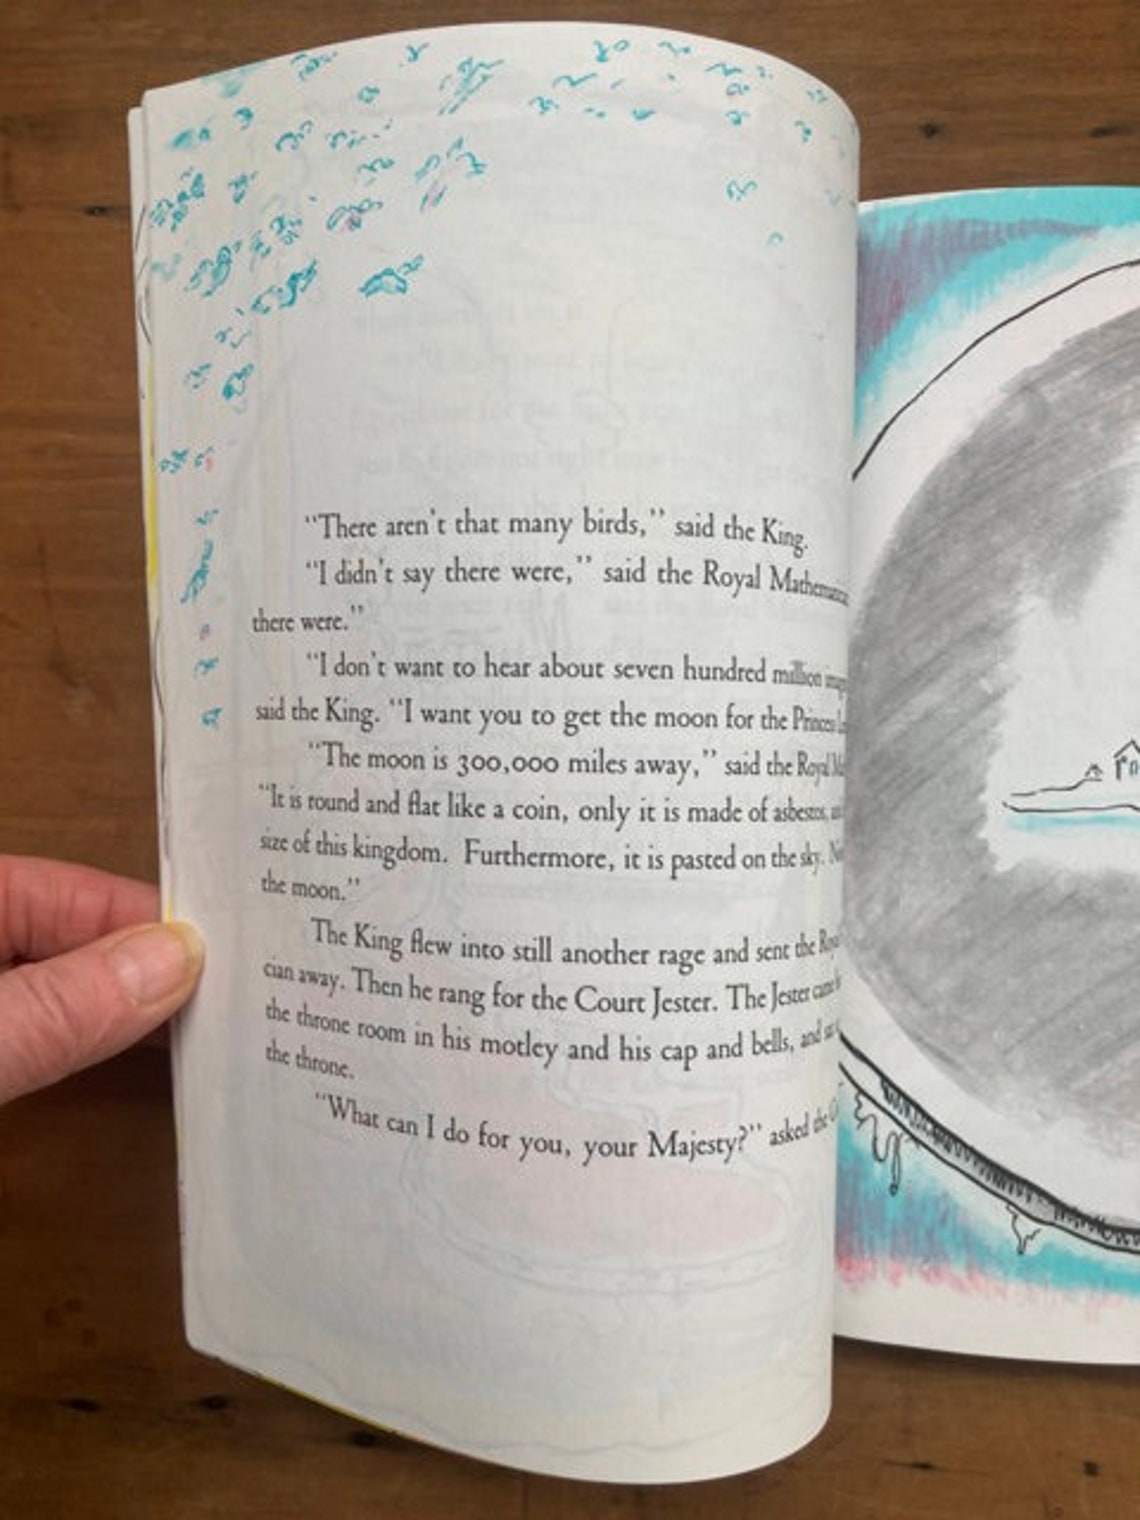 “There aren’t that many birds,” said the King.
“I didn’t say there were,” said the Royal
there were.”
“I don’t want to hear about seven hundred million
said the King. “I want you to get the moon for the Princess
“The moon is 300,000 miles away,” said the Royal
“It is round and flat like a coin, only it is made of asbestos,
size of this kingdom. Furthermore, it is pasted on the sky.
the moon.”
The King flew into still another rage and sent the
cian away. Then he rang for the Court Jester. The Jester came
the throne room in his motley and his cap and bells, and
the throne.
“What can I do for you, your Majesty?” asked the